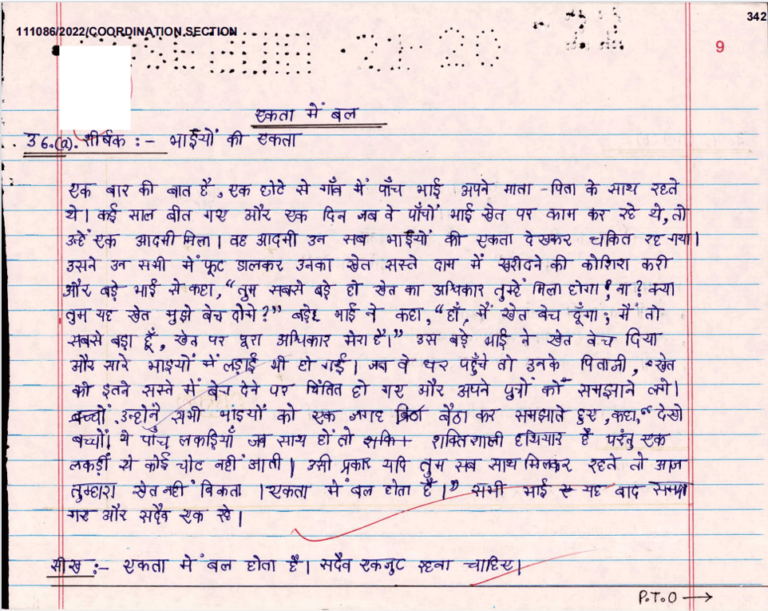 342
111086/2022/COORDINATION SECTION
9
एकता में बल
उ6.(a). शीर्षक :- भाईयों की एकता
एक बार की बात है, एक छोटे से गाँव में पाँच भाई अपने माता-पिता के साथ रहते
थे। कई साल बीत गए और एक दिन जब वे पाँचों भाई खेत पर काम कर रहे थे, तो
उन्हें एक आदमी मिला। वह आदमी उन सब भाईयों की एकता देखकर चकित रह गया।
उसने उन सभी में फूट डालकर उनका खेत सस्ते दाम में खरीदने की कोशिश करी
और बड़े भाई से कहा, "तुम सबसे बड़े हो खेत का अधिकार तुम्हें मिला होगा, ना? क्या
तुम यह खेत मुझे बेच दोगे?" बड़े भाई ने कहा, "हाँ, मैं खेत बेच दूँगा; मैं तो
सबसे बड़ा हूँ, खेत पर पूरा अधिकार मेरा है।" उस बड़े भाई ने खेत बेच दिया
और सारे भाईयों में लड़ाई भी हो गई। जब वे घर पहुँचे तो उनके पिताजी, खेत
को इतने सस्ते में बेच देने पर चिंतित हो गए और अपने पुत्रों को समझाने लगे।
उन्होंने सभी भाईयों को एक जगह बैठा कर समझाते हुए, कहा, "देखो
बच्चों! ये पाँच लकड़ियाँ जब साथ हों तो शक्तिशाली हथियार हैं परंतु एक
लकड़ी से कोई चोट नहीं आती। उसी प्रकार यदि तुम सब साथ मिलकर रहते तो आज
तुम्हारा खेत नहीं बिकता। एकता में बल होता है।" सभी भाई यह बाद समझ
गए और सदैव एक रहे।
सीख :- एकता में बल होता है। सदैव एकजुट रहना चाहिए।
P.T.O →